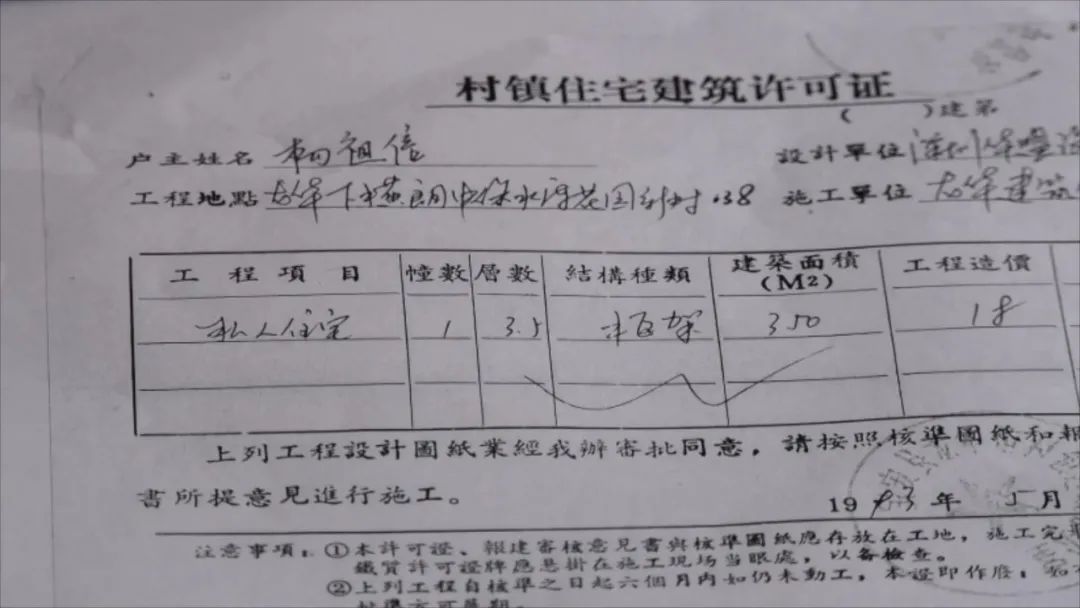 村镇住宅建筑许可证
( )建第
户主姓名 祖信
設計單位深圳華
工程地點 龙华下横朗中保水浮花园新村 38
施工單位 龙华建筑
工程項目 幢數 層數 結構種類 建築面積(M2) 工程造價
私人住宅 1 3.5 框架 350 18
上列工程設計圖紙業經我辦審批同意，請按照核準圖紙和報
書所提意見進行施工。
1993年 5月
注意事項：①本許可證、報建審核意見書與核準圖紙應存放在工地，施工完
鐵質許可證牌應悬掛在施工現場当眼處，以备檢查。
②上列工程自核準之日起六個月内如仍未動工，本證即作廢；如